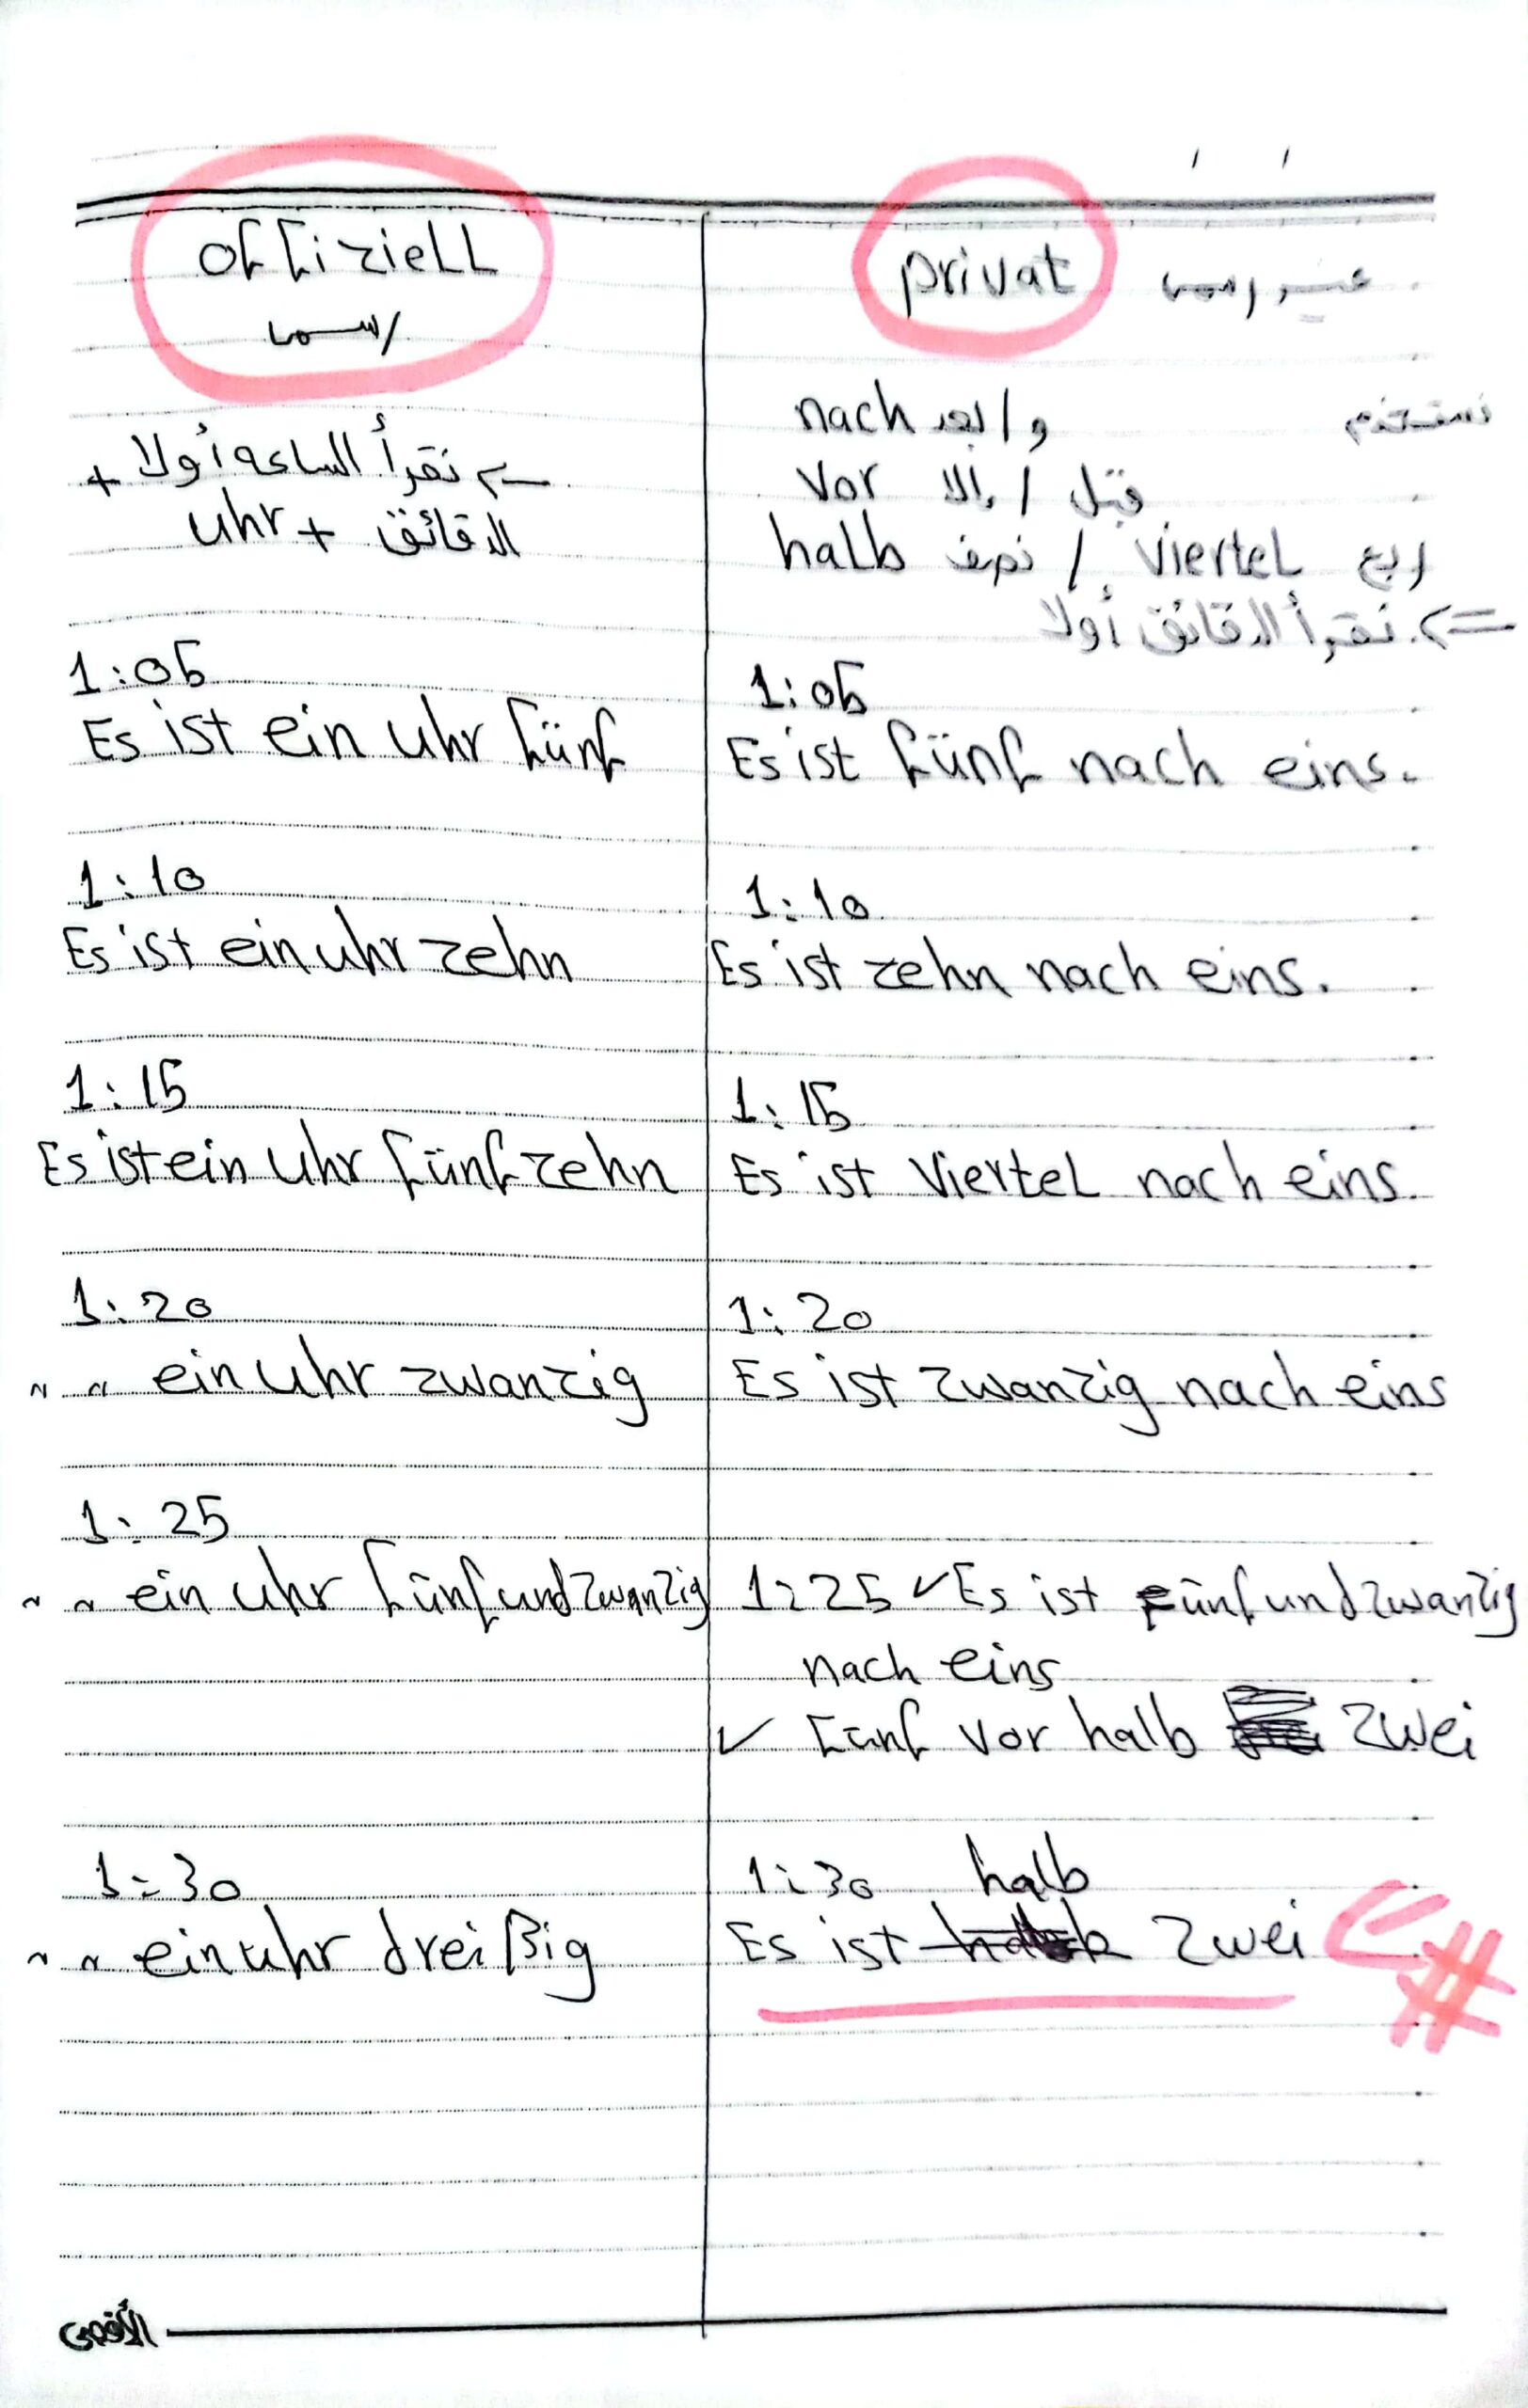 offiziell
رسمي
← نقرأ الساعة أولا +
uhr + الدقائق
1:05
Es ist ein Uhr fünf
1:10
Es ist ein uhr zehn
1:15
Es ist ein Uhr fünfzehn
1:20
" " ein Uhr zwanzig
1:25
" " ein Uhr fünfundzwanzig
1:30
" " ein uhr dreißig
privat غير رسمي
nach و / بعد نستخدم
vor قبل / إلا
halb نصف / viertel ربع
=> نقرأ الدقائق أولا
1:05
Es ist fünf nach eins.
1:10
Es ist zehn nach eins.
1:15
Es ist Viertel nach eins.
1:20
Es ist zwanzig nach eins
1:25 ✓ Es ist fünfundzwanzig
nach eins
✓ fünf vor halb zwei
1:30 halb
Es ist zwei
الأقصى